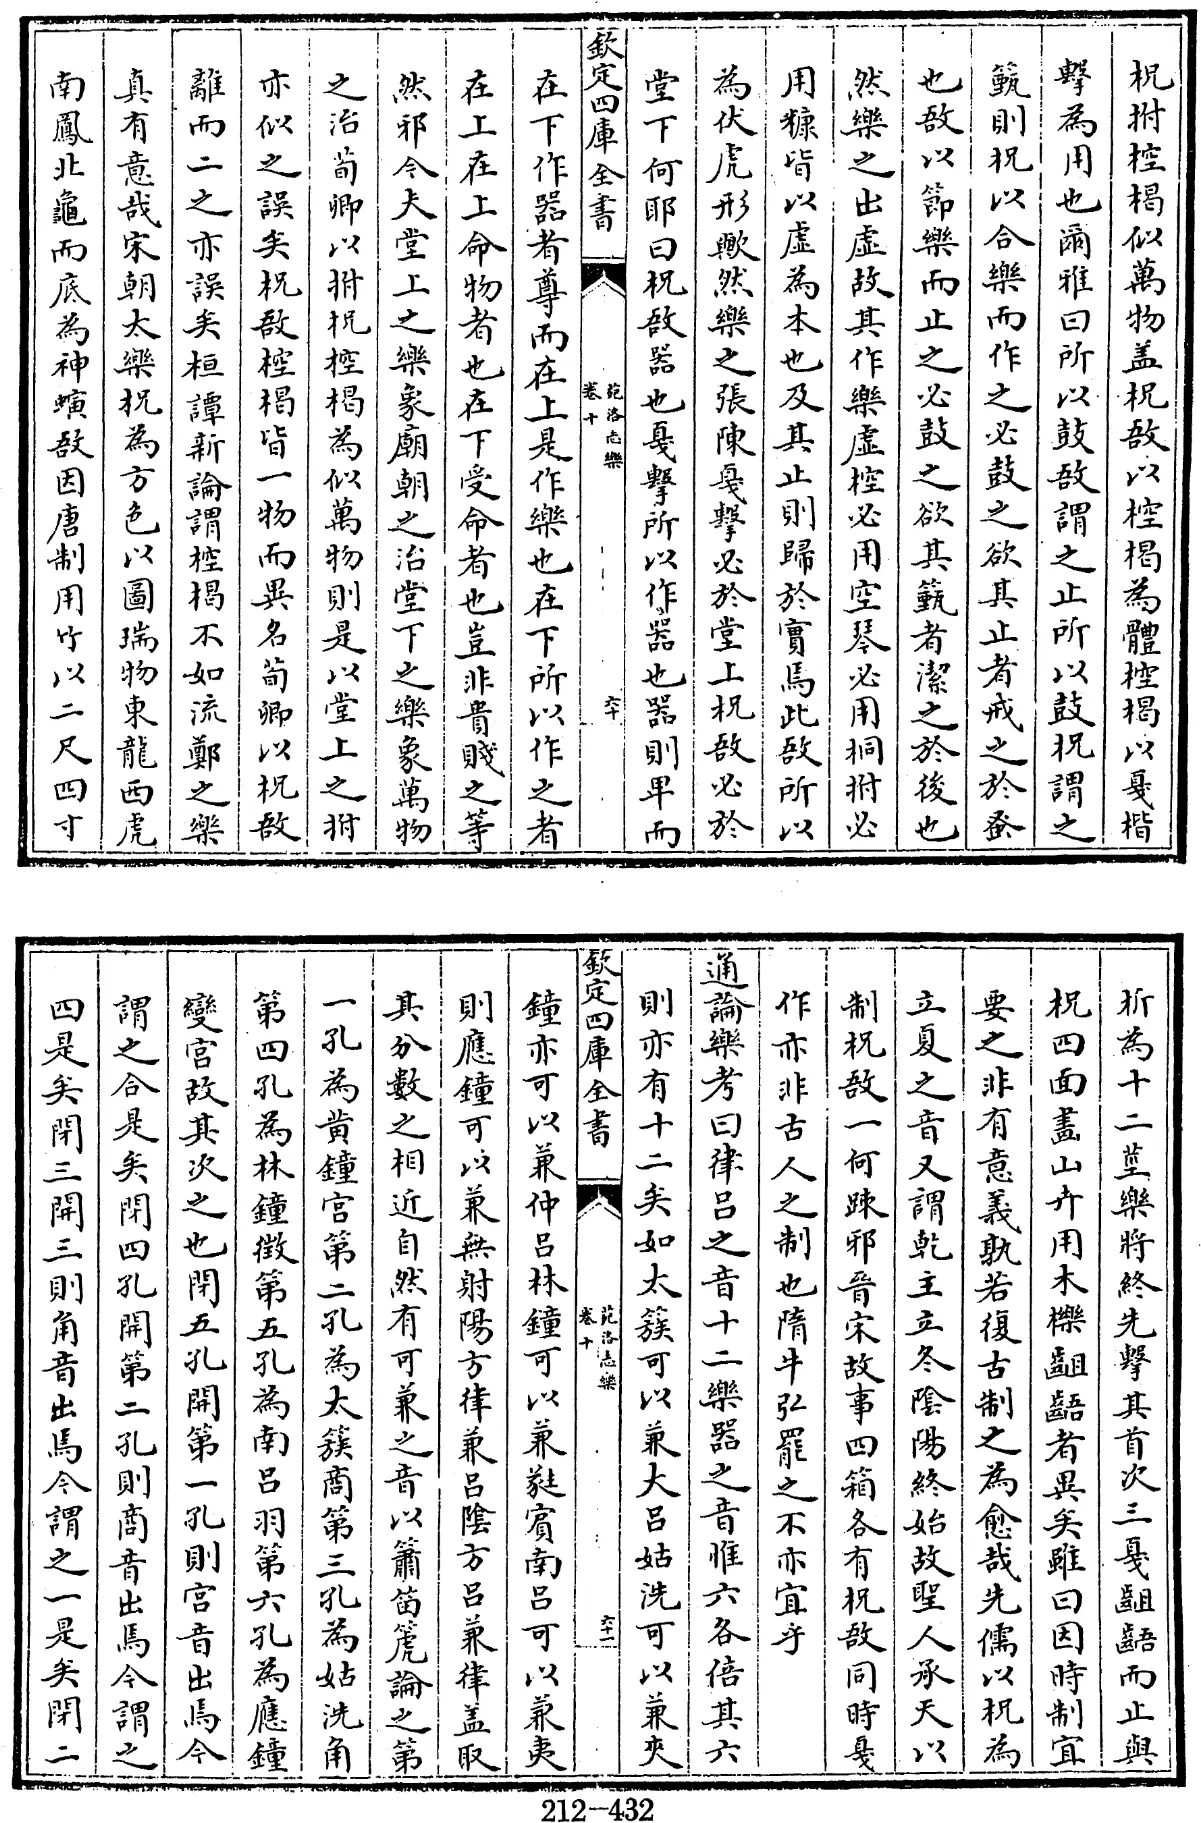 柷拊椌楬似萬物盖柷敔以椌楬為體椌楬以戞楷
擊為用也爾雅曰所以鼓敔謂之止所以鼓柷謂之
籈則柷以合樂而作之必鼓之欲其止者戒之於蚤
也敔以節樂而止之必鼓之欲其籈者潔之於後也
然樂之出虚故其作樂虚椌必用空琴必用桐拊必
用糠皆以虚為本也及其止則歸於實焉此敔所以
為伏虎形歟然樂之張陳戞擊必於堂上柷敔必於
堂下何耶曰柷敔器也戞擊所以作器也器則卑而
欽定四庫全書
苑洛志樂
卷十
六十
在下作器者尊而在上是作樂也在下所以作之者
在上在上命物者也在下受命者也豈非貴賤之等
然邪今夫堂上之樂象廟朝之治堂下之樂象萬物
之治荀卿以拊柷椌楬為似萬物則是以堂上之拊
亦似之誤矣柷敔椌楬皆一物而異名荀卿以柷敔
離而二之亦誤矣桓譚新論謂椌楬不如流鄭之樂
真有意哉宋朝太樂柷為方色以圖瑞物東龍西虎
南鳳北龜而底為神螾敔因唐制用竹以二尺四寸
析為十二莖樂將終先擊其首次三戞齟齬而止與
柷四面畫山卉用木櫟齟齬者異矣雖曰因時制宜
要之非有意義孰若復古制之為愈哉先儒以柷為
立夏之音又謂乾主立冬陰陽終始故聖人承天以
制柷敔一何踈邪晉宋故事四箱各有柷敔同時戞
作亦非古人之制也隋牛弘罷之不亦宜乎
通論樂考曰律呂之音十二樂器之音惟六各倍其六
則亦有十二矣如太簇可以兼大呂姑洗可以兼夾
欽定四庫全書
苑洛志樂
卷十
六十一
鐘亦可以兼仲呂林鐘可以兼蕤賓南呂可以兼夷
則應鐘可以兼無射陽方律兼呂陰方呂兼律盖取
其分數之相近自然有可兼之音以簫笛箎論之第
一孔為黄鐘宫第二孔為太簇商第三孔為姑洗角
第四孔為林鐘徴第五孔為南呂羽第六孔為應鐘
變宫故其次之也閉五孔開第一孔則宫音出焉今
謂之合是矣閉四孔開第二孔則商音出焉今謂之
四是矣閉三開三則角音出焉今謂之一是矣閉二
212-432